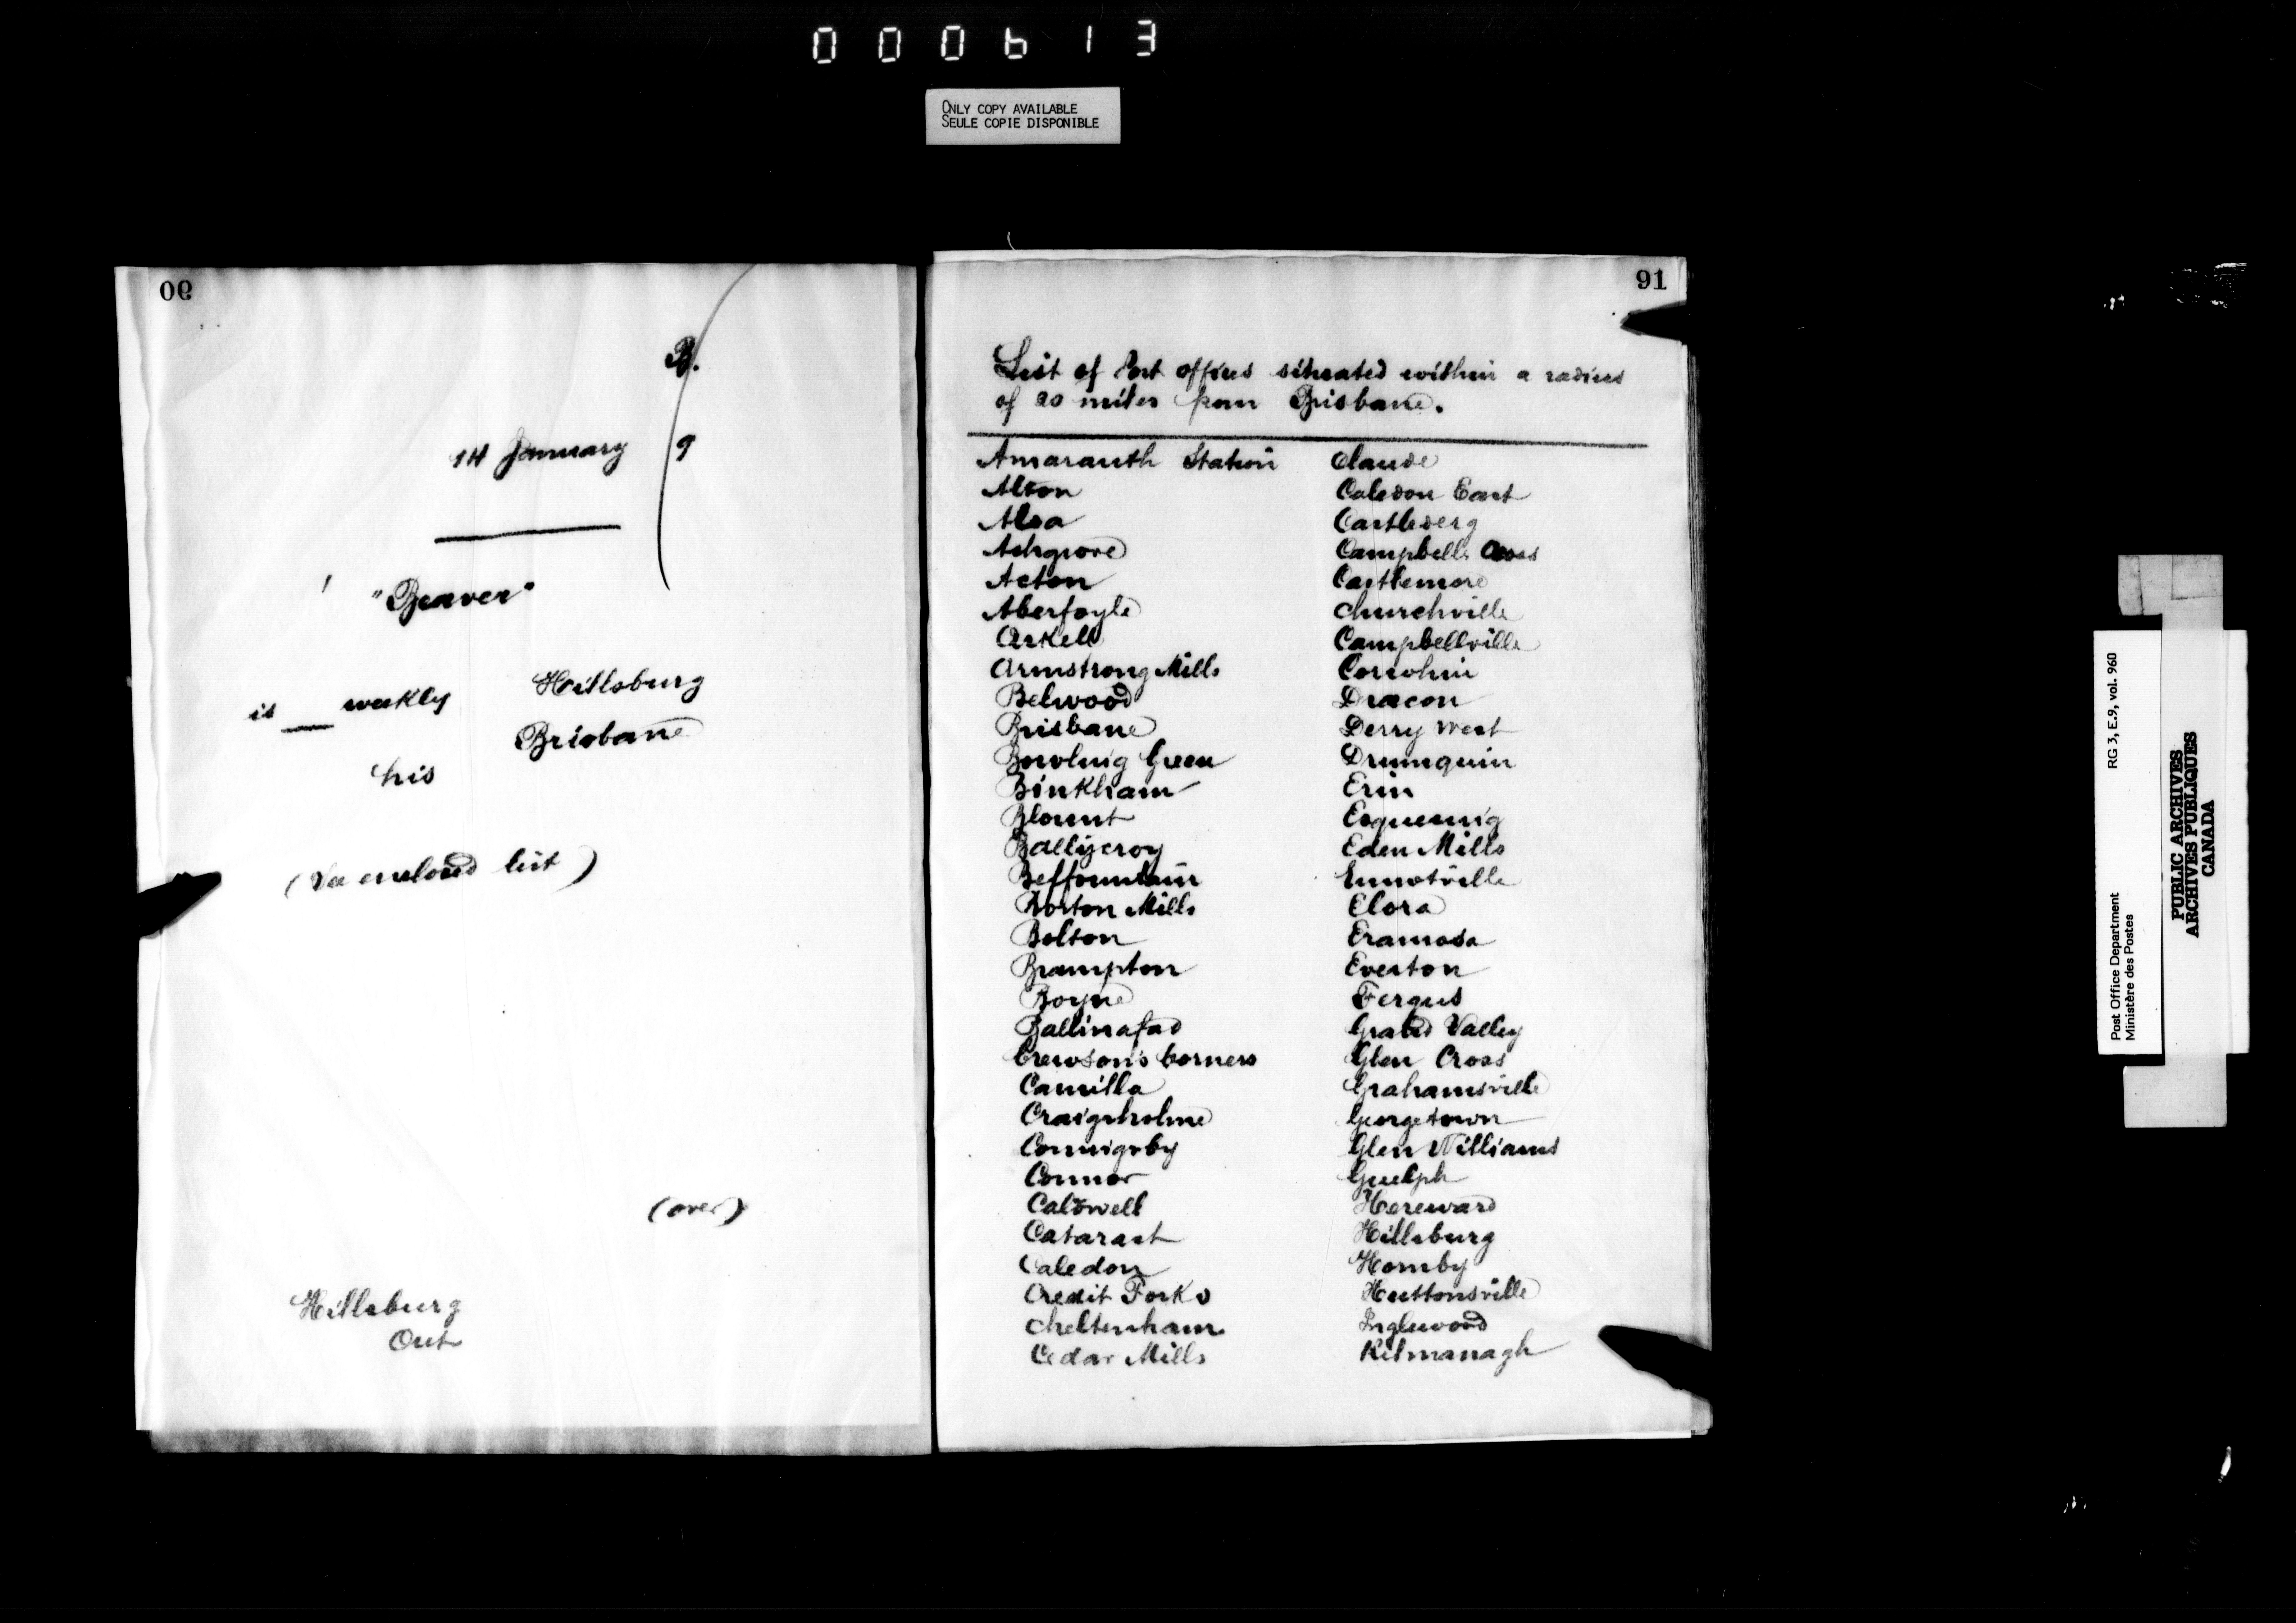 000613
ONLY COPY AVAILABLE
SEULE COPIE DISPONIBLE
90
B.
14 January 9
"Beaver"
Hillsburg
is ___ weekly
Brisbane
his
(See enclosed list)
(over)
Hillsburg
Ont
91
List of Post offices situated within a radius
of 20 miles from Brisbane.
Amaranth Station
Alton
Aloa
Ashgrove
Acton
Aberfoyle
Arkell
Armstrong Mills
Belwood
Brisbane
Bowling Green
Binkham
Blount
Ballycroy
Belfountain
Boston Mills
Bolton
Brampton
Boyne
Ballinafad
Crewson's Corners
Camilla
Craigsholme
Conningsby
Connor
Caldwell
Cataract
Caledon
Credit Forks
Cheltenham
Cedar Mills
Claude
Caledon East
Castlederg
Campbells Cross
Castlemore
Churchville
Campbellville
Corwhin
Dracon
Derry West
Drumquin
Erin
Esquesing
Eden Mills
Ennotville
Elora
Eramosa
Everton
Fergus
Grand Valley
Glen Cross
Grahamsville
Georgetown
Glen Williams
Guelph
Hereward
Hillsburg
Hornby
Huttonsville
Inglewood
Kilmanagh
Post Office Department
Ministère des Postes
RG 3, E.9, vol. 960
PUBLIC ARCHIVES
ARCHIVES PUBLIQUES
CANADA